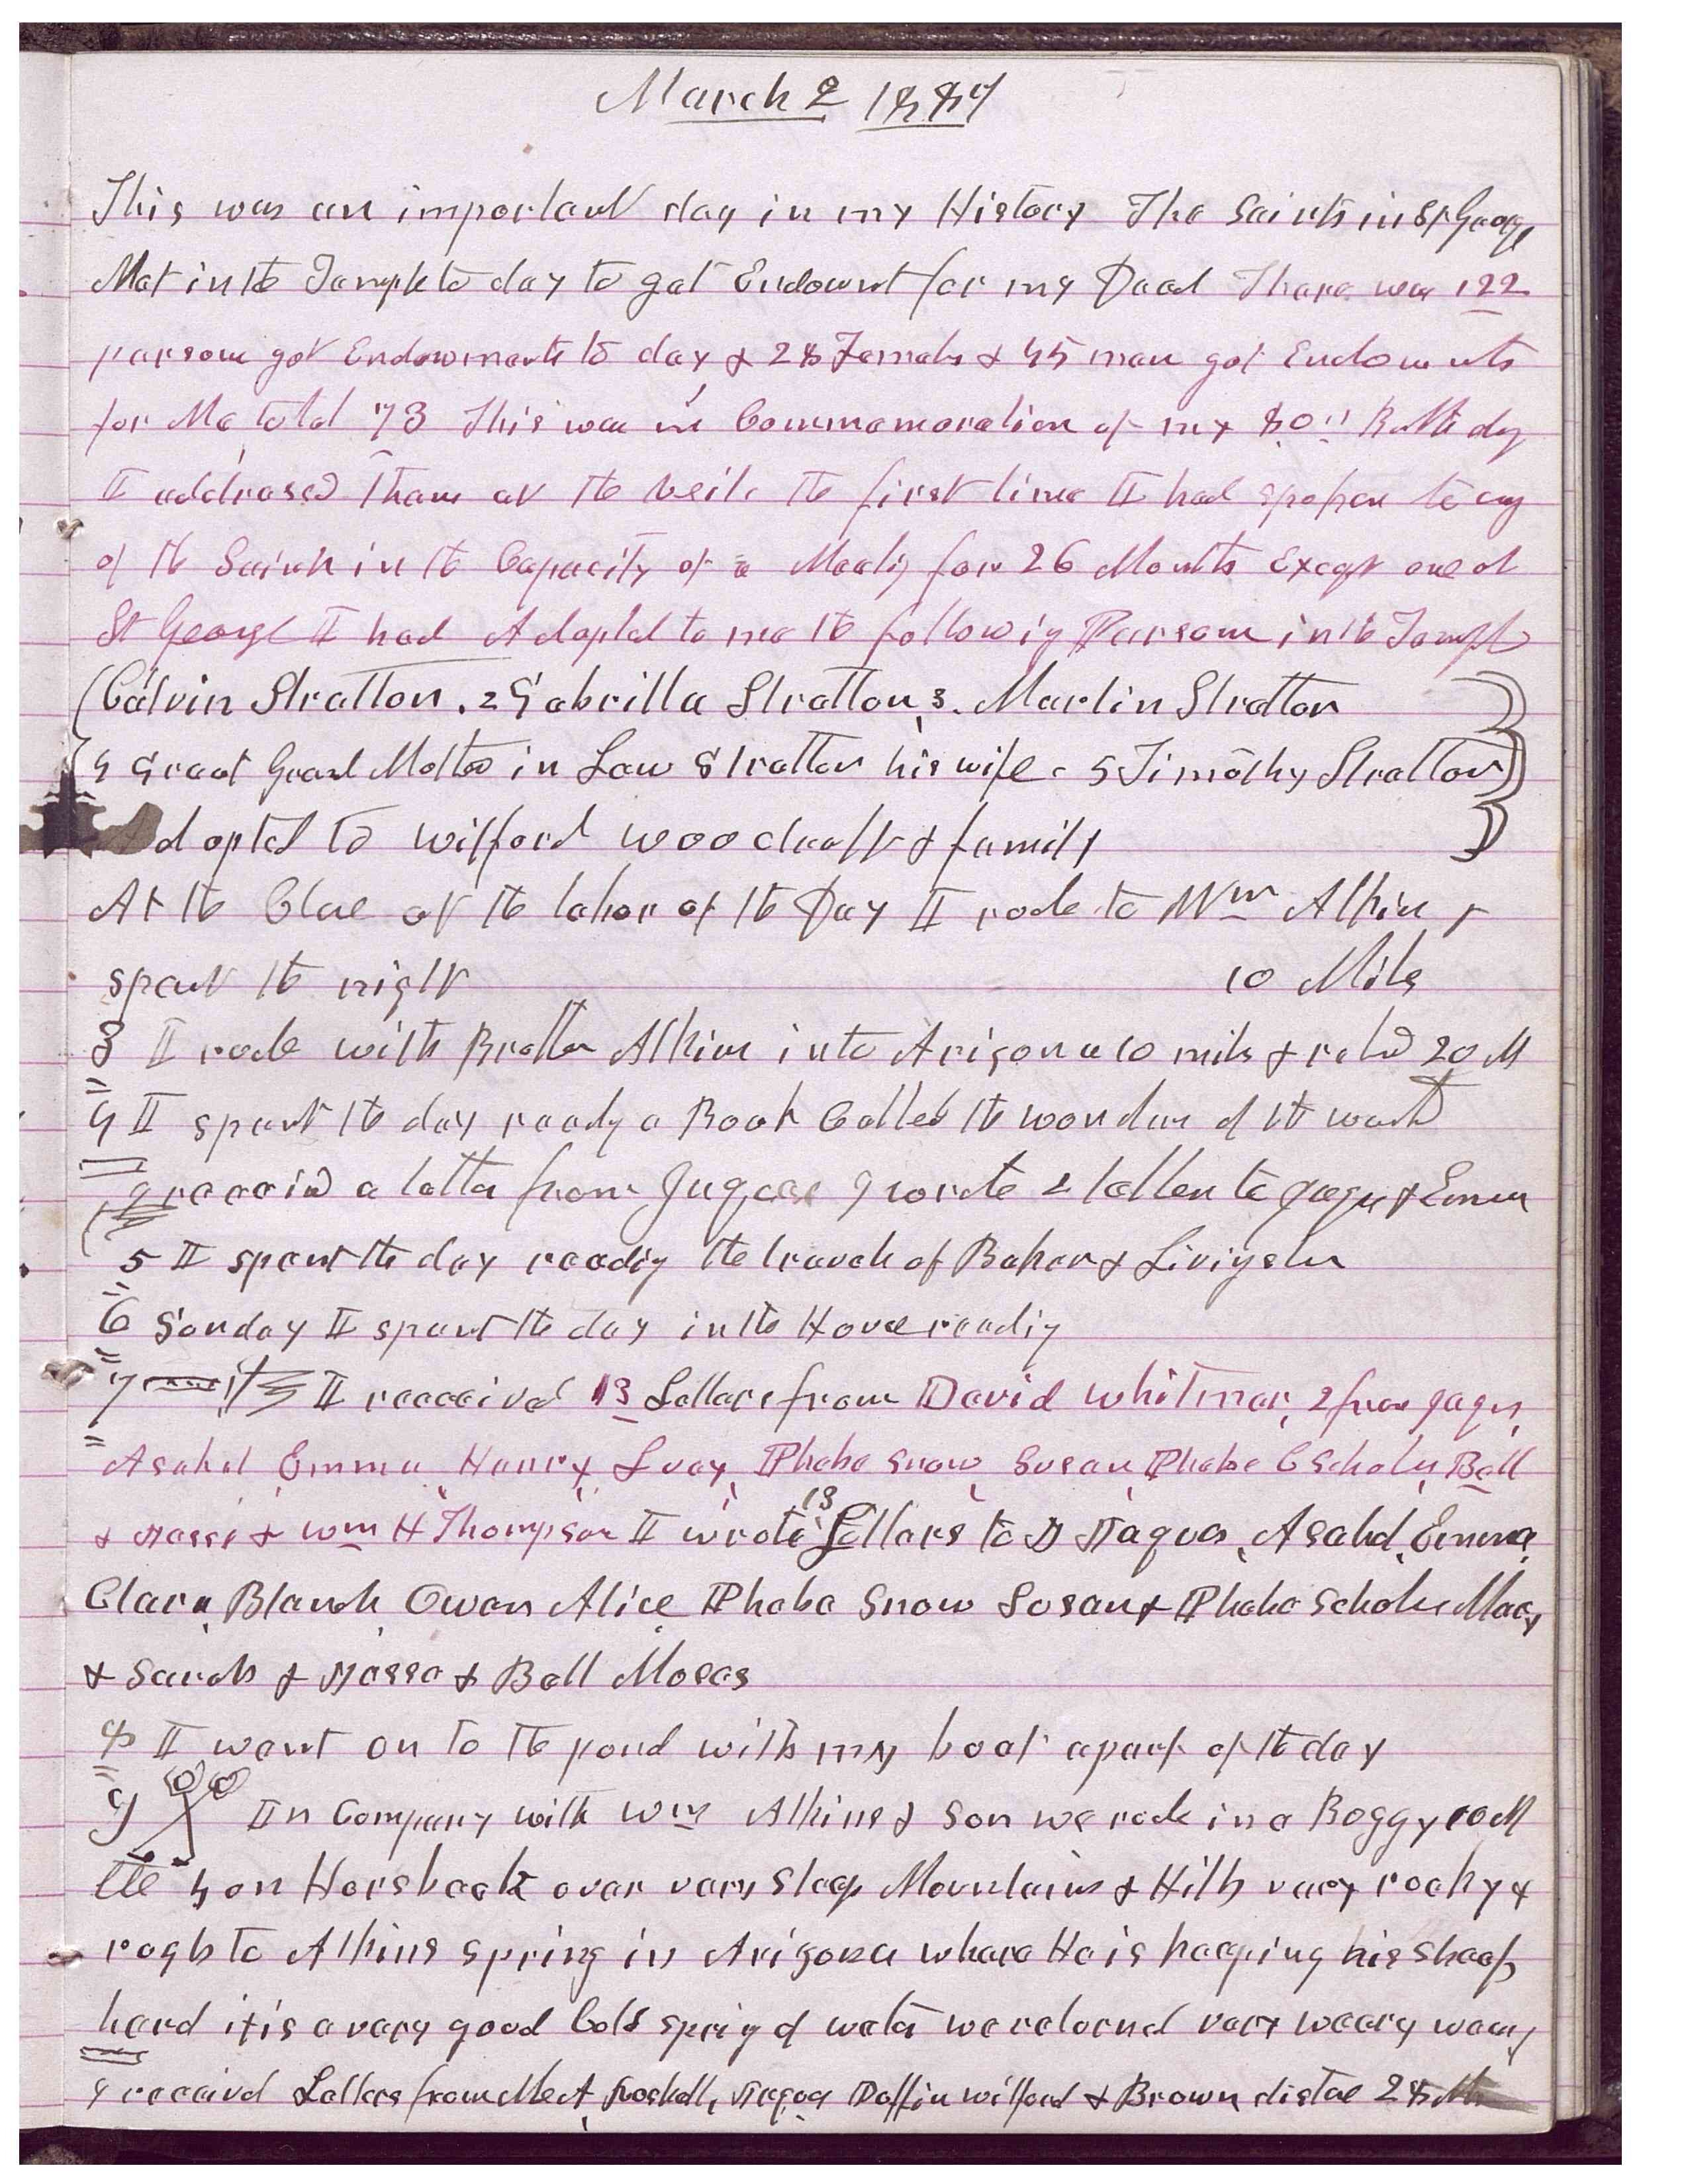 March 2 1887
This was an important day in my History The Saints in St George
Met in the Temple to day to get Endowmt for my Dead There were 122
persons got Endowments to day & 28 Females & 45 men got Endowments
for Me total 73 This was in Commemoration of my 80th Birth day
I addressed them at the veil the first time I had spoken to any
of the Saints in the Capacity of a Meeting for 26 Months Except one at
St George I had Adopted to me the following Persons in the Temple
(Calvin Stratton. 2 Gabrilla Stratton, 3. Martin Stratton
4 Great Grand Mother in Law Stratton his wife - 5 Timothy Stratton
Adopted to Wilford Woodruff & family
At the Close of the labor of the Day I rode to Wm Atkin &
spent the night 10 Miles
3 I rode with Brother Atkin into Arizona 10 miles & retd 20 M
4 I spent the day reading a Book Called the wonders of the world
I receeivd a letter from Jaques I wrote 2 letters to Jaques & Emma
5 I spent the day reading the travels of Baker & Livingston
6 Sunday I spent the day in the House reading
7 I receeived 13 Letters from David Whitmer, 2 from Jaques,
Asahel Emma Henry, Lucy, Phebe Snow Susan, Phebe C Scholes, Bell
& Nasse & Wm H Thompson I wrote 13 Letters to D Naques, Asahel, Emma,
Clara, Blanch Owen Alice Phebe Snow Susan & Phebe Scholes Mary
& Sarah & Nesse & Bell Moses
8 I went on to the pond with my boat a part of the day
9 In Company with Wm Atkins & Son we rode in a Boggy 10 M
the 4 on Horsback over very steep Mountains & Hills very rocky &
rogh to Atkins spring in Arizona where He is keeping his sheep
herd it is a very good Cold spring of water we returned very weary
I receeivd Letters from McA, Roskell, Naques Daffin Wilford & Brown distance 28 M